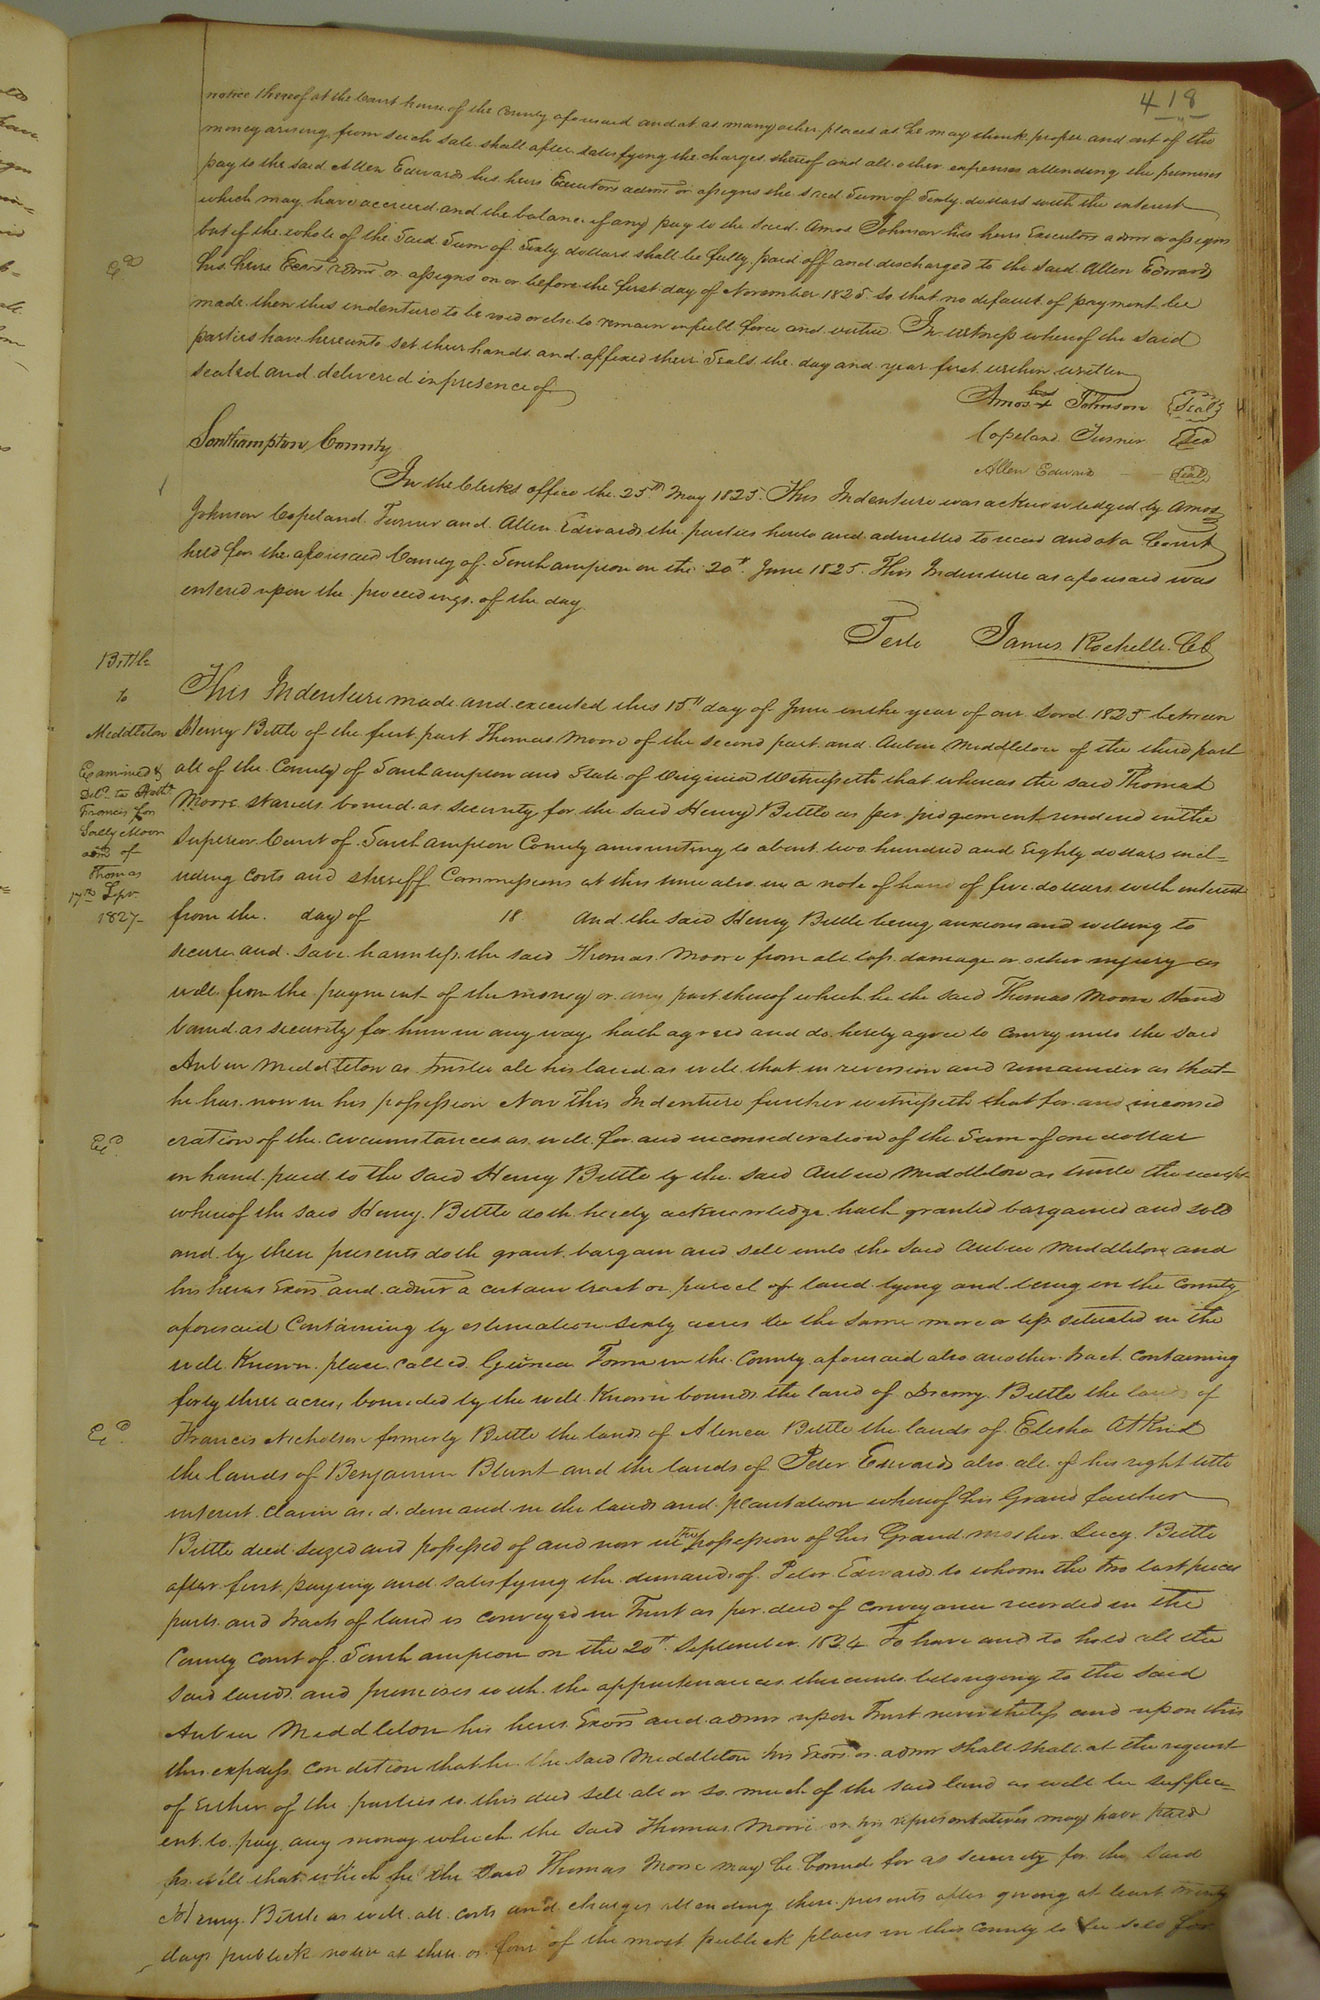 418
notice thereof at the Court house of the County aforesaid and at as many other places as he may think proper and out of the
money arising from such sale shall after satisfying the charges thereof and all other expenses attending the premises
pay to the said Allen Edwards his heirs Executors admrs or assigns the said Sum of Sixty dollars with the interest
which may have accrued and the balance if any pay to the said Amos Johnson his heirs Executors admr or assigns
but if the whole of the Said Sum of Sixty dollars shall be fully paid off and discharged to the said Allen Edwards
his heirs Exors admr or assigns on or before the first day of November 1825 so that no default of payment be
made then this indenture to be void or else to remain in full force and virtue In witness whereof the said
parties have hereunto set their hands and affixed their Seals the day and year first within written
sealed and delivered in presence of
Amos x Johnson Seal
Copeland Turner Sea
Allen Edwards Seal
Southampton County
In the Clerks office the 25th May 1825. This Indenture was acknowledged by Amos
Johnson Copeland Turner and Allen Edwards the parties hereto and admitted to record and at a Court
held for the aforesaid County of Southampton on the 20th June 1825 This Indenture as aforesaid was
entered upon the proceedings of the day
Teste James Rochelle CC
Bittle
to
Middleton
Examined &
Francis for
Sally Moor
adm of
Thomas
17th Sepr
1827-
This Indenture made and executed this 15th day of June in the year of our Lord 1825 between
Henry Bittle of the first part Thomas Moore of the second part and Auben Middleton of the third part
all of the County of Southampton and State of Virginia Witnesseth that whereas the said Thomas
Moore stands bound as security for the said Henry Bittle as per judgement rendered in the
Superior Court of Southampton County amounting to about two hundred and Eighty dollars incl-
uding costs and sheriff Commissions at this time also in a note of hand of five dollars with interest
from the day of 18 And the said Henry Bittle being anxious and willing to
secure and save harmless the said Thomas Moore from all loss damage or other injury as
well from the payment of the money or any part thereof which he the said Thomas Moore stand
bound as security for him in any way hath agreed and do hereby agree to convey unto the said
Auben Middleton as trustee all his land as well that in reversion and remainder as that
he has now in his possession Now This Indenture further witnesseth that for and inconsid
eration of the circumstances as well for and inconsideration of the Sum of one dollar
in hand paid to the said Henry Bittle by the said Auben Middleton as trustee the receipt
whereof the said Henry Bittle doth hereby acknowledge hath granted bargained and sold
and by these presents doth grant bargain and sell unto the said Auben Middleton and
his heirs Exors and admr a certain tract or parcel of land lying and being in the County
aforesaid Containing by estimation sixty acres be the same more or less situated in the
well Known place called Guinea Town in the County aforesaid also another tract containing
forty three acres, bounded by the well Known bounds the land of Drewry Bittle the lands of
Francis Nicholson formerly Bittle the lands of Alinea Bittle the lands of Elisha Atkins
the lands of Benjamin Blunt and the lands of Peter Edwards also all of his right title
interest claim and demand in the lands and plantation whereof his Grand father
Bittle died seized and possessed of and now in the possession of his Grand mother Lucy Bittle
after first paying and satisfying the demands of Peter Edwards to whom the two last pieces
parts and tracts of land is conveyed in Trust as per deed of conveyance recorded in the
County court of Southampton on the 20th September 1824 To have and to hold all the
said lands and premises with the appurtenances thereunto belonging to the said
Auben Middleton his heirs Exors and admrs upon Trust nevertheless and upon this
this express condition that he the said Middleton his Exors or admr shall shall at the request
of Either of the parties to this deed sell all or so much of the said land as will be suffici-
ent to pay any money which the said Thomas Moore or his representatives may have paid
as well that which he the said Thomas Moore may be bound for as security for the said
Henry Bittle as well all costs and charges attending these presents after giving at least twenty
days publick notice at three or four of the most publick places in this County to be sold for